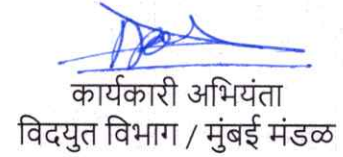 कार्यकारी अभियंता
विदयुत विभाग / मुंबई मंडळ